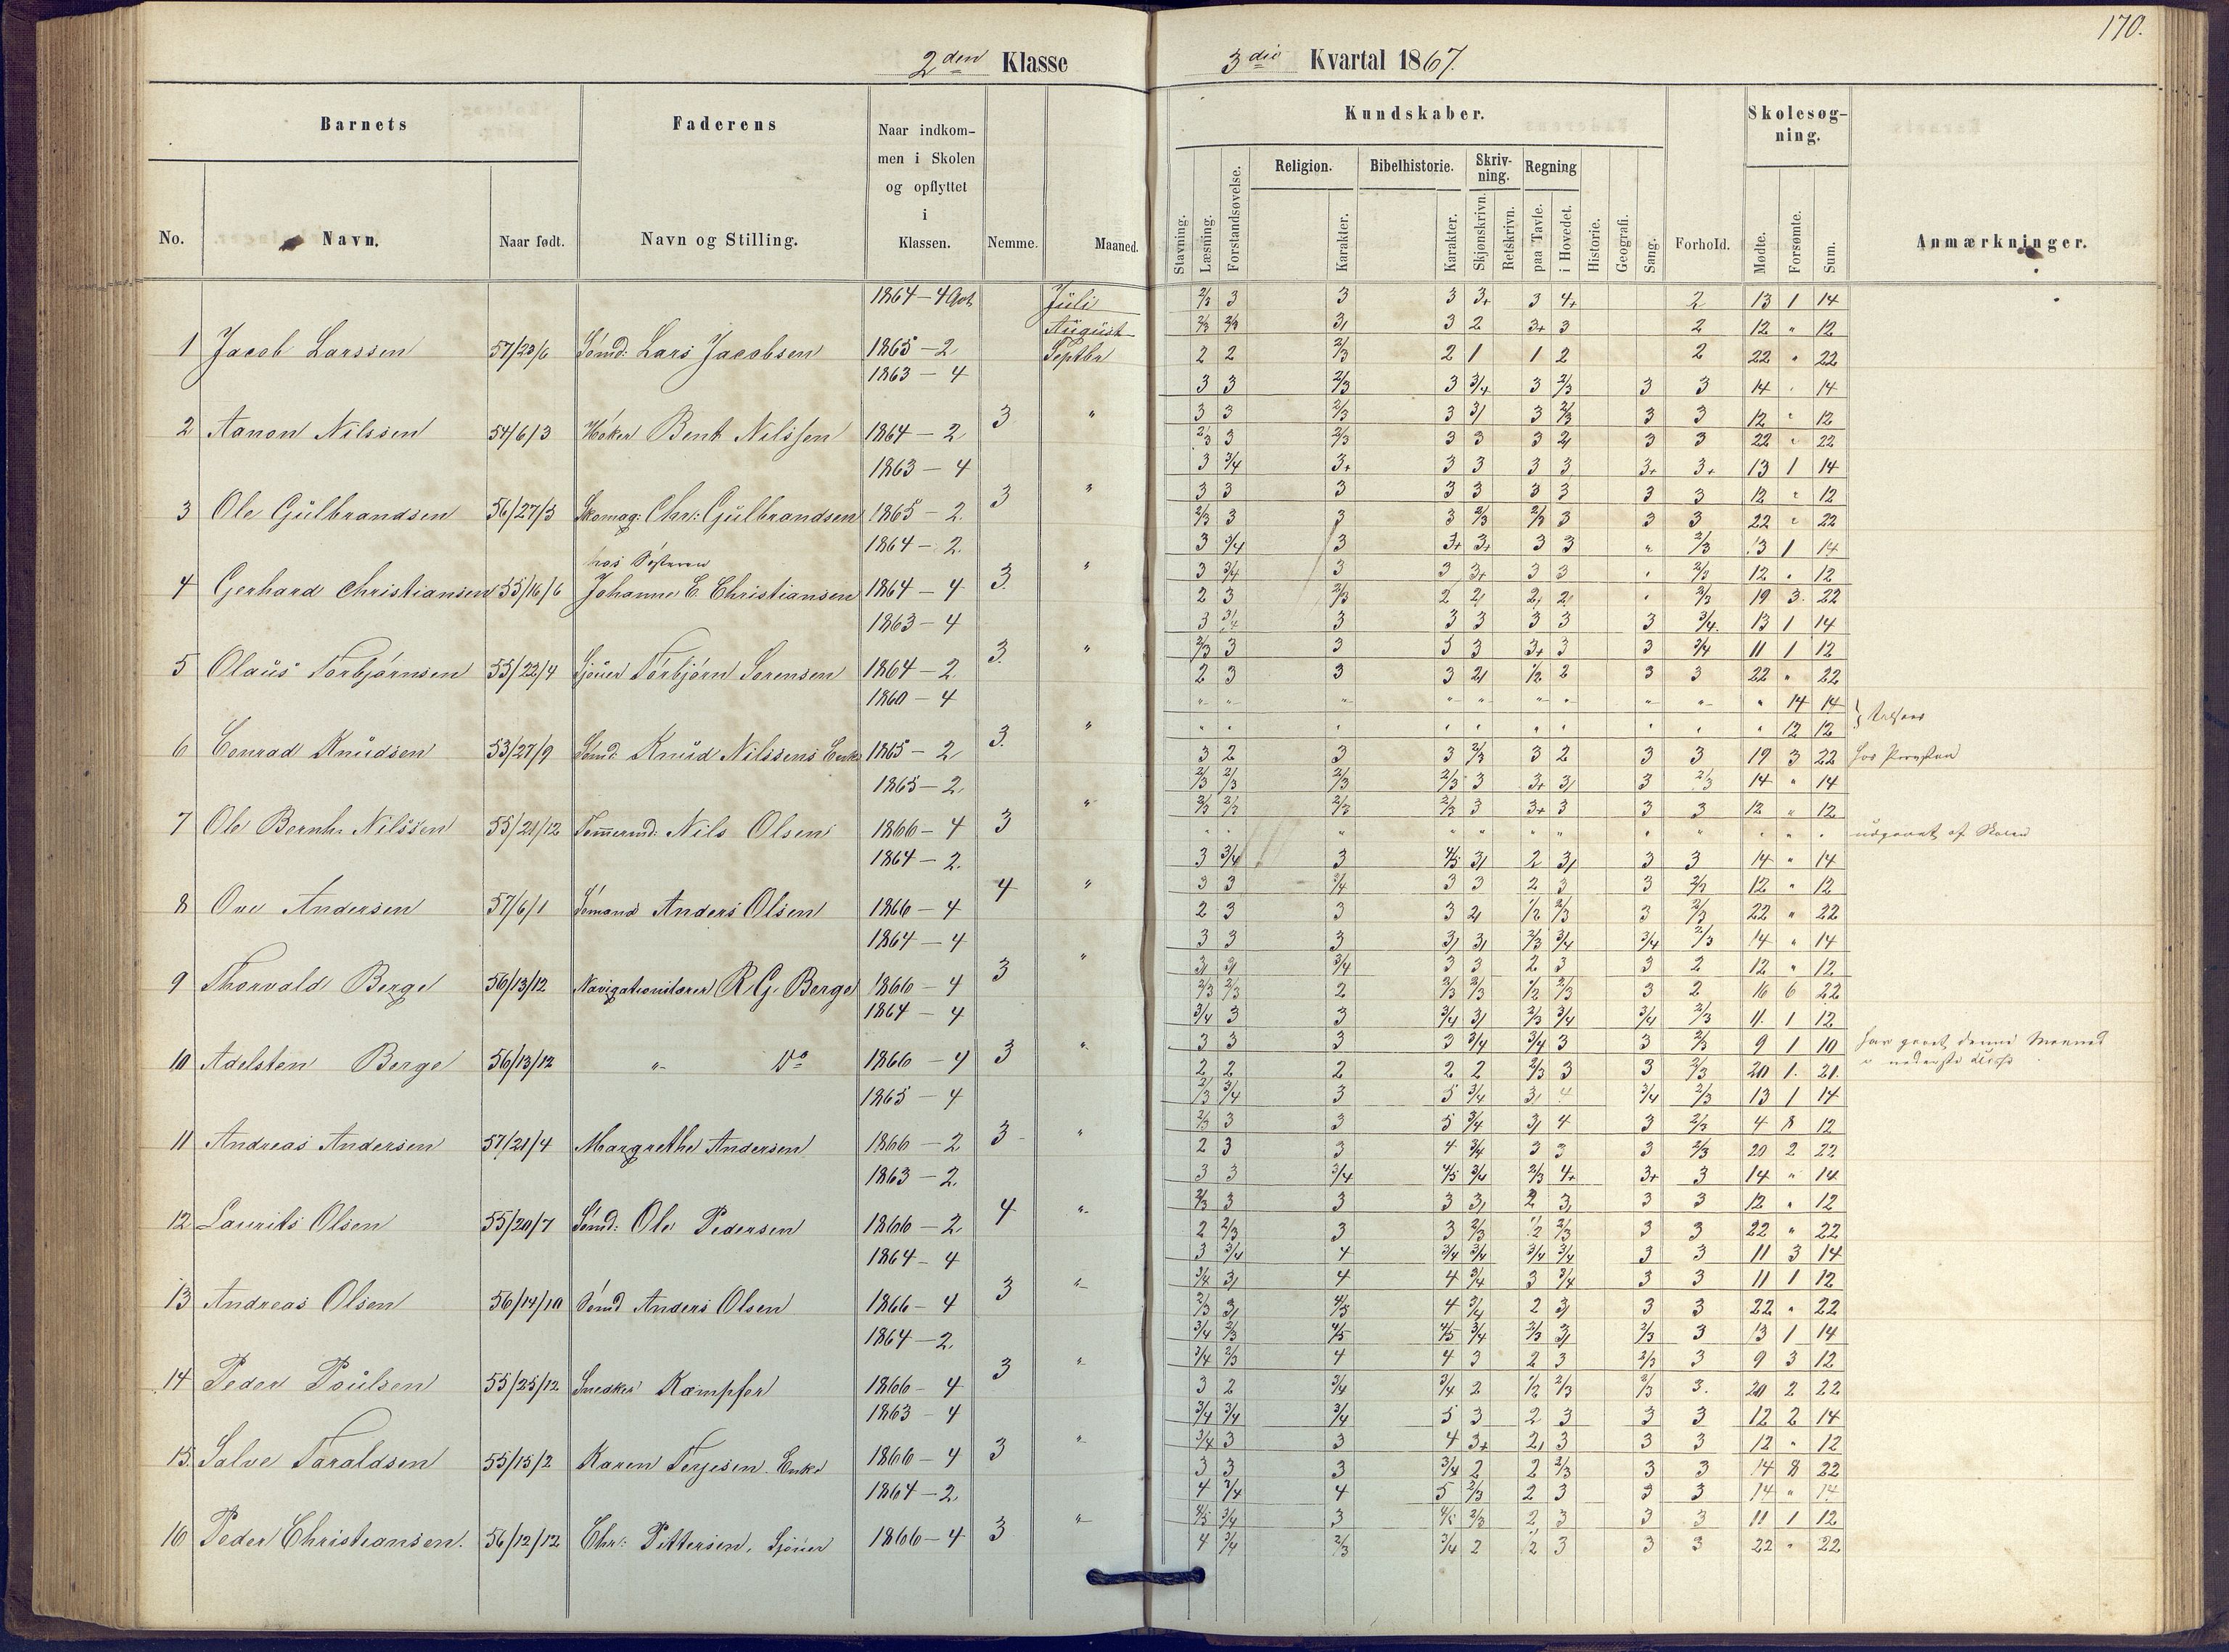 170.
2den Klasse
3die Kvartal 1867.
Barnets
Faderens
Naar indkommen i Skolen og opflyttet i Klassen.
Nemme.
Maaned.
No.
Navn.
Naar født.
Navn og Stilling.
Kundskaber.
Stavning.
Læsning.
Forstandsøvelse.
Religion.
Karakter.
Bibelhistorie.
Karakter.
Skrivning.
Skjønskrivn.
Retskrivn.
Regning
paa Tavle.
i Hovedet.
Historie.
Geografi.
Sang.
Forhold.
Skolesøgning.
Mødte.
Forsømte.
Sum.
Anmærkninger.
1864 - 4 Juli 2/3 3 3 3 3+ 3 4+ 2 13 1 14
August 3 2 3+ 3 2 12 " 12
1 Jacob Larssen 57/20/6 Sömd: Lars Jacobsen 1865 - 2 Septbr 2 2 2/3 2 1 1 2 2 22 " 22
1863 - 4 3 3 2/3 3 3/4 3 2/3 3 3 14 " 14
3 " 3 3 2/3 3 3/ 3 2/3 3 3 12 " 12
2 Aanon Nilssen 54/6/3 Höker Bent Nilssen 1864 - 2 2/3 3 2/3 3 3 3 2/ 3 3 22 " 22
1863 - 4 3 3/4 3+ 3 3 3 3 3+ 3+ 13 1 14
3 " 3 3 3 3 3 3 3 3 3 12 " 12
3 Ole Gülbrandsen 56/27/3 Skomag: Chr: Gülbrandsen 1865 - 2. 2/3 3 3 3 2/3 2/3 3 3 3 22 " 22
1864 - 2. 3 3/4 3 3+ 3+ 3 3 " 2/3 13 1 14
hos Sösteren 3. " 3 3/4 3 3 3+ 3 3 " 2/3 12 " 12
4 Gerhard Christiansen 55/16/6 Johanne E. Christiansen 1864 - 4 2 3 2/3 2 2/ 2/ 2/ " 2/3 19 3 22
1863 - 4 3 3/4 3 3 3 3 3 3 3/4 13 1 14
3. " 2/3 3 3 3 3 3+ 3 3 3/4 11 1 12
5 Olaüs Torbjörnsen 55/22/4 Torbjörn Sorensen 1864 - 2 2 3 3 3 2/ 1/2 2 3 3 22 " 22
1860 - 4 " " " " " " " " " " 14 14
3. " " " " " " " " " " " 12 12
6 Conrad Knüdsen 53/27/9 Sömd: Knüd Nilssens Enke 1865 - 2 3 2 3 3 2/3 3 2 3 3 19 3 22
1865 - 2 2/3 2/3 2/3 2/3 3 3+ 3/ 3 2/3 14 " 14
3 " 2/3 2/3 2/3 2/3 3 3+ 3 3 3 12 " 12
7 Ole Bernh. Nilssen 55/21/12 Nils Olsen 1866 - 4 " " " " " " " " " " " " af Skolen
1864 - 2. 3 3/4 3 4/5 3/ 2 3/ 3 3 14 " 14
4 " 3 3 3/4 3 3 2 3 3 2/3 12 " 12
8 Ove Andersen 57/6/1 Sömand Anders Olsen 1866 - 4 2 3 3 3 2/ 1/2 2/3 3 2/3 22 " 22
1864 - 4 3 3 3 3/ 3/ 2/3 3/4 3/4 2/3 14 " 14
3 " 3/ 3/ 3/4 3 3 2 3 3 2 12 " 12
9 Thorvald Berge 56/13/12 Navigationslærer R. G. Berge 1866 - 4 2/3 2/3 2 2/3 2/3 1/2 2/3 3 2 16 6 22
1864 - 4 3/4 3 3 3/4 3/ 2/3 3/4 3/4 2/3 11. 1 12
3 " 3 3 3 3 3/4 3/4 3 3 2/3 9 1 10 har denne Maaned
10 Adelsten Berge 56/13/12 " Do 1866 - 4 2 2 2 2 2 2/3 3 3 2/3 20 1. 21. i nederste
1865 - 4 2/3 3/4 3 5 3/4 3/ 4 3/4 2/3 13 1 14
3 " 2/3 3 3 5 3/4 3/ 4 3 2/3 4 8 12
11 Andreas Andersen 57/21/4 Margrethe Andersen 1866 - 2 2 3 3 4 3/4 3 3 3 2/3 20 2 22
1863 - 2. 3 3 3/4 4/5 3/4 2/3 4+ 3+ 3 14 " 14
4 " 2/3 3 3 3 3/ 2 3/ 3 3 12 " 12
12 Laurits Olsen 55/20/7 Sömd: Ole Pedersen 1866 - 2 2 2/3 3 3 2/3 1/2 2/3 3 3 22 " 22
1864 - 4 3 3/4 4 3/4 3/4 3/4 3/4 3 3 11 3 14
3 " 3/4 3/ 4 4 3/4 3 3/4 3 3 11 1 12
13 Andreas Olsen 56/14/10 Sömd Anders Olsen 1866 - 4 2/3 3/ 4/5 4 3/4 2 3/ 3 3 22 " 22
1864 - 2. 3/4 2/3 4/5 4/5 3/4 2/3 3/ 2/3 3 13 1 14
3 " 3/4 2/3 4 4 3 2 3 2/3 3 9 3 12
14 Peder Poülsen 55/25/12 Snedker Kæmpfer 1866 - 4 3 2 3/4 3/4 2 1/2 2/3 2/3 3. 20 2 22
1863 - 4 3/4 3/4 3/4 5 3 2 3 3 3 12 2 14
3 " 3/4 3 3 4 3+ 2/ 3 3 3 12 " 12
15. Salve Taraldsen 55/15/2 Karen Terjesen. Enke 1866 - 4 3 3 3 3/4 2 2 2/3 3 3 14 8 22
1864 - 2 4 3/4 4 5 2/3 2 3 3 3 14 " 14
3 " 4/5 3/4 3 4/5 2/3 2 3 3 3 11 1 12
16 Peder Christiansen. 56/12/12 Chr: Pettersen, 1866 - 4 4 3/4 2/3 3/4 2 1/2 3 3 3 22 " 22